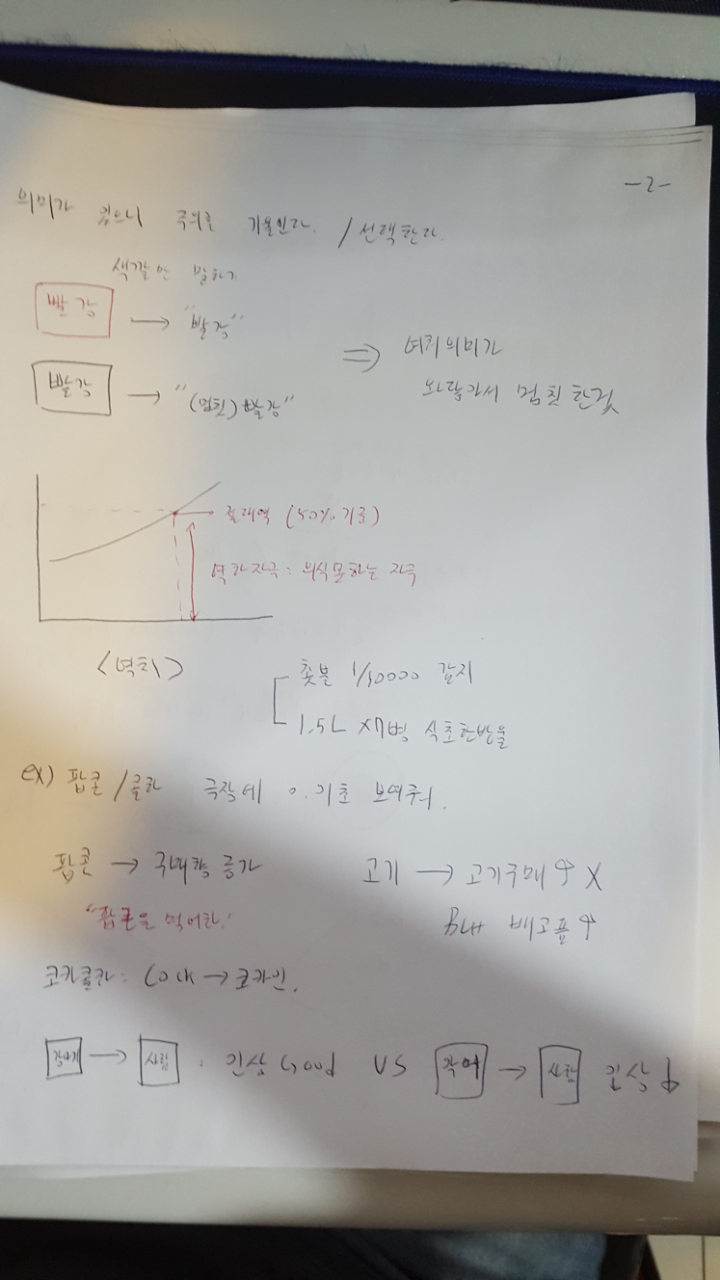 -2-
의미가 있으니 주의를 기울인다. / 선택한다.
색깔만 말하기
빨강 → "빨강"
빨강 → "(멈칫) 빨강"
⇒ 어휘의미가
와닿아서 멈칫한것
절대역 (50% 기준)
역하자극 : 의식못하는 자극
<역치>
촛불 1/10000 감지
1.5L 식초한방울
ex) 팝콘 / 콜라 극장에 0. 기초 보여주니.
팝콘 → 구매력 증가
"팝콘을 먹어라."
고기 → 고기구매↑ X
but 배고픔↑
코카콜라 : → 코카인.
→ 사람 : 인상 Good VS 악어 → 사람 인상